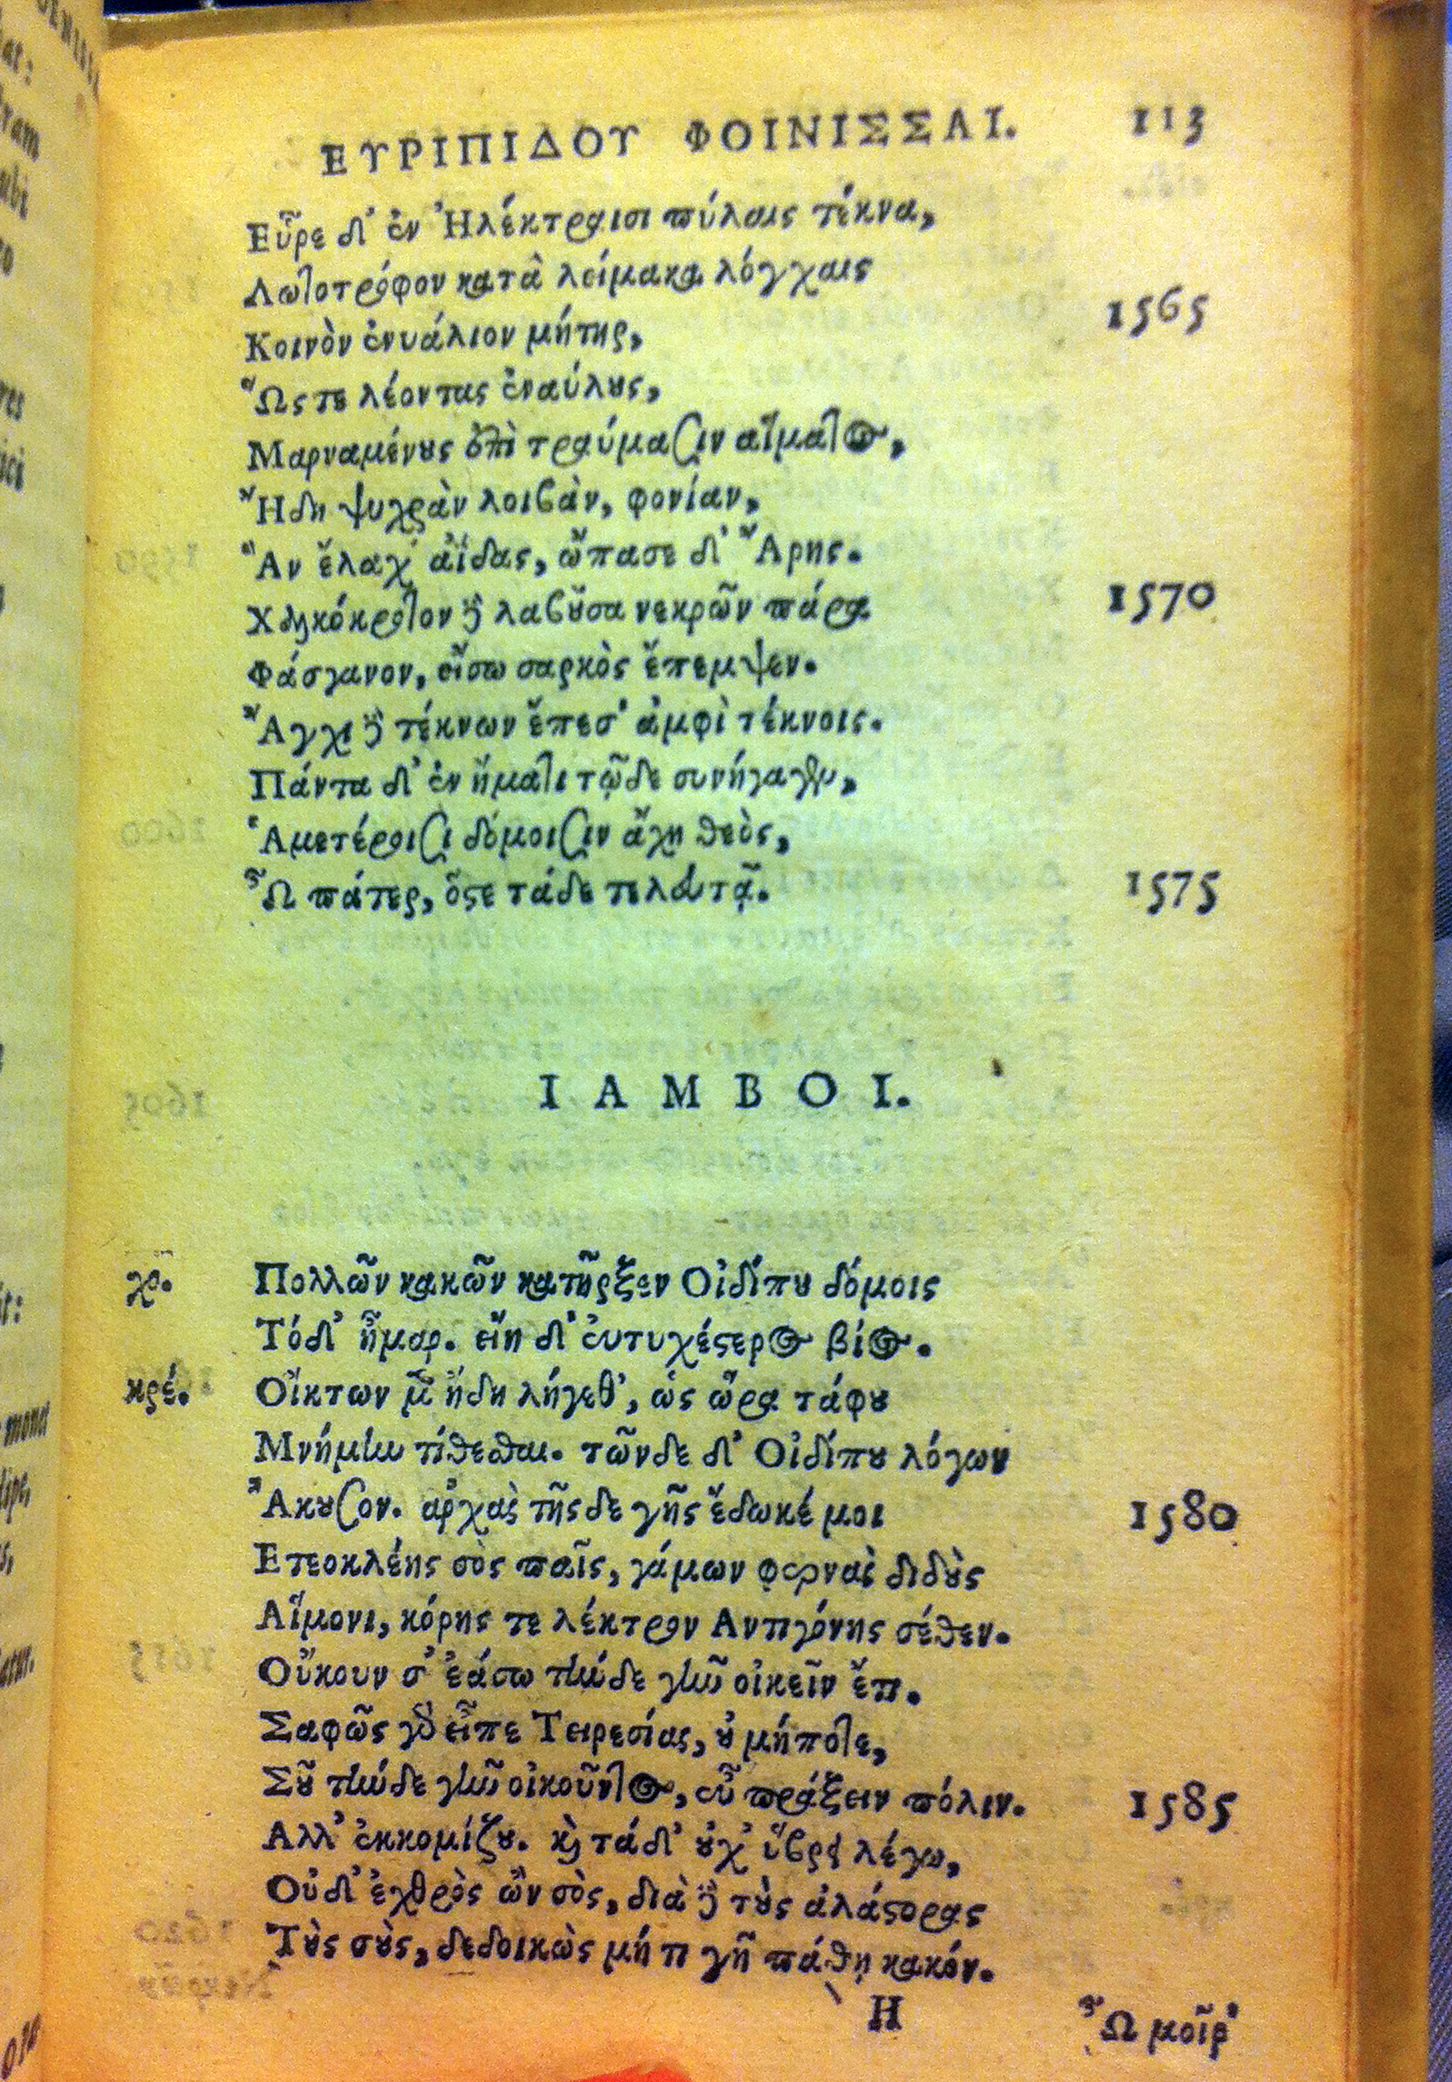 ΕΥΡΙΠΙΔΟΥ ΦΟΙΝΙΣΣΑΙ. 113
Εὗρε δ' ἐν Ἠλέκτραισι πύλαις τέκνα,
Λωτοτρόφον κατὰ λείμακα λόγχαις
Κοινὸν ἐνυάλιον μήτηρ, 1565
Ὥς τε λέοντας ἐναύλους,
Μαρναμένους ἐπὶ τραύμασιν αἵματος,
Ἤδη ψυχρὰν λοιβὰν, φονίαν,
Ἃν ἔλαχ' ἀΐδας, ὤπασε δ' Ἄρης.
Χαλκόκροτον δὲ λαβοῦσα νεκρῶν πάρα 1570
Φάσγανον, εἴσω σαρκὸς ἔπεμψεν.
Ἄγχι δὲ τέκνων ἔπεσ' ἀμφὶ τέκνοις.
Πάντα δ' ἐν ἤματι τῷδε συνήγαγεν,
Ἁμετέροισι δόμοισιν ἄχη θεὸς,
Ὦ πάτερ, ὅστε τάδε τελευτᾷ. 1575
ΙΑΜΒΟΙ.
χο. Πολλῶν κακῶν κατῆρξεν Οἰδίπου δόμοις
Τόδ' ἦμαρ. εἴη δ' εὐτυχέστερος βίος.
κρέ. Οἴκτων μὲν ἤδη λήγεθ', ὡς ὥρα τάφου
Μνήμην τίθεσθαι. τῶνδε δ' Οἰδίπου λόγων
Ἄκουσον. ἀρχὰς τῆσδε γῆς ἔδωκέ μοι 1580
Ετεοκλέης σὸς παῖς, γάμων φερνὰς διδοὺς
Αἵμονι, κόρης τε λέκτρον Αντιγόνης σέθεν.
Οὔκουν σ' ἐάσω τήνδε γῆν οἰκεῖν ἔτι.
Σαφῶς γὰρ εἶπε Τειρεσίας, οὐ μήποτε,
Σοῦ τήνδε γῆν οἰκοῦντος, εὖ πράξειν πόλιν. 1585
Αλλ' ἐκκομίζου. καὶ τάδ' οὐχ' ὕβρει λέγω,
Οὐδ' ἐχθρὸς ὢν σὸς, διὰ δὲ τοὺς ἀλάστορας
Τοὺς σοὺς, δεδοικὼς μή τι γῆ πάθῃ κακόν.
H Ὦ μοῖρ'